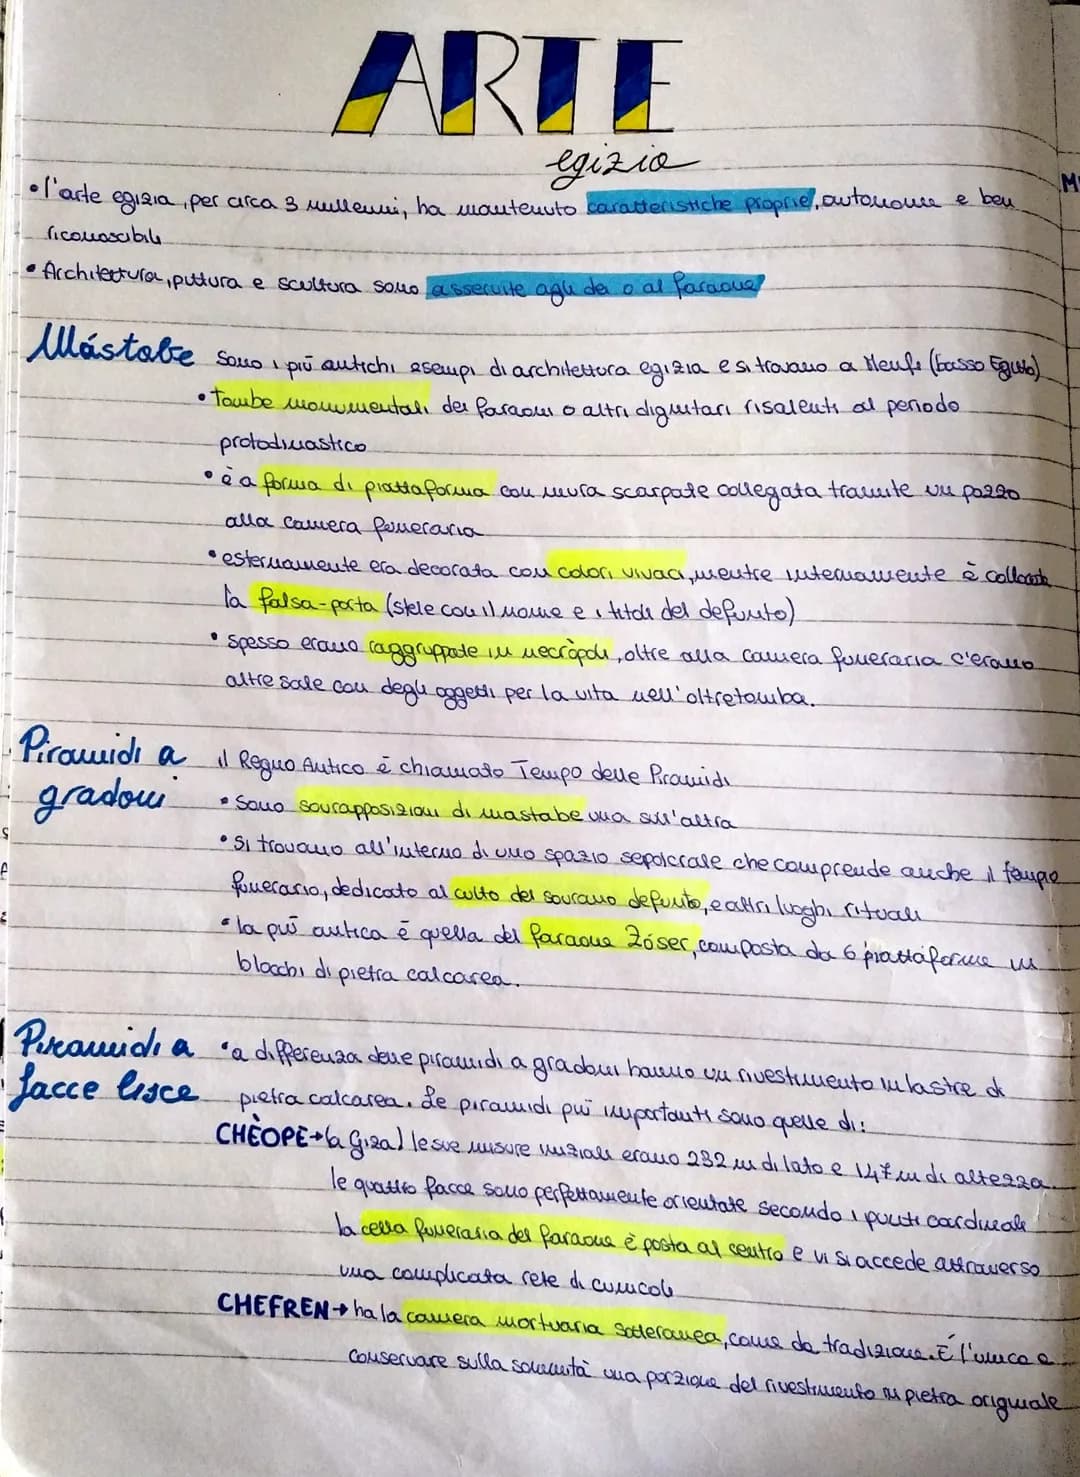 ARTE
egizia
• l'arte egizia, per circa 3 millenni, ha mantenuto caratteristiche proprie, autonome e ben
riconoscibili
• Architettura, pittura e scultura sono asservite agli dei o al faraone
Mástabe sono i più antichi esempi di architettura egizia e si trovano a Menfi (basso Egitto)
• tombe monumentali dei faraoni o altri dignitari risalenti al periodo
protodinastico
• è a forma di piattaforma con mura scarpate collegata tramite un pozzo
alla camera funeraria
• esternamente era decorata con colori vivaci, mentre internamente è collocata
la falsa-porta (stele con il nome e i titoli del defunto)
• spesso erano raggruppate in necròpoli, oltre alla camera funeraria c'erano
altre sale con degli oggetti per la vita nell'oltretomba.
Piramidi a il Regno Antico è chiamato Tempo delle Piramidi
gradoni • Sono sovrapposizioni di mastabe una sull'altra
• Si trovano all'interno di uno spazio sepolcrale che comprende anche il tempio
funerario, dedicato al culto del sovrano defunto, e altri luoghi rituali
• la più antica è quella del faraone Zóser, composta da 6 piattaforme in
blocchi di pietra calcarea.
Piramidi a • a differenza delle piramidi a gradoni hanno un rivestimento in lastre di
facce lisce pietra calcarea. Le piramidi più importanti sono quelle di:
CHÈOPE → (a Giza) le sue misure iniziali erano 232 m di lato e 147 m di altezza.
le quattro facce sono perfettamente orientate secondo i punti cardinali
la cella funeraria del faraone è posta al centro e vi si accede attraverso
una complicata rete di cunicoli
CHEFREN → ha la camera mortuaria sotteranea, come da tradizione. È l'unica a
conservare sulla sommità una porzione del rivestimento in pietra originale